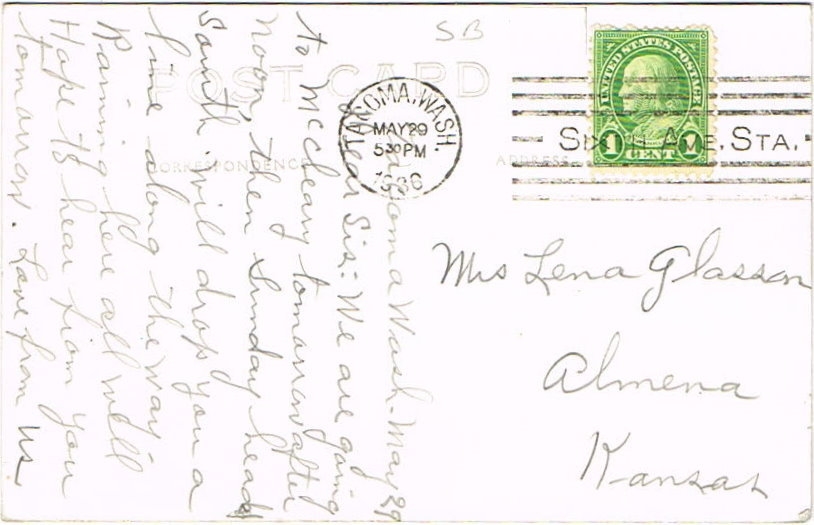 SB
POST CARD
CORRESPONDENCE
ADDRESS
TACOMA, WASH.
MAY 29
5 30 PM
1936
SIXTH AVE. STA.
UNITED STATES POSTAGE
1 CENT 1
Mrs Lena Glasson
Almena
Kansas
Tacoma Wash. May 29
Dear Sis: We are going
to McCleary tomorrow after
noon, then Sunday head
South. Will drop you a
line along the way.
Raining here all well
Hope to hear from you
tomorrow. Love from us